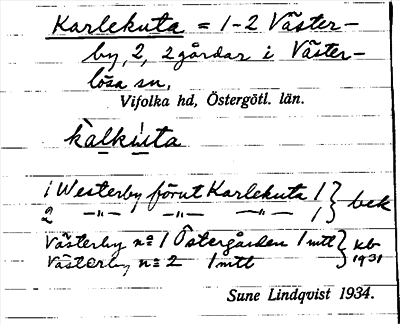 Karlekuta = 1-2 Väster-
by, 2, 2 gårdar i Väster-
lösa sn,
Vifolka hd, Östergötl. län.
kalkuta
1 Westerby förut Karlekuta 1 } bek
2 —"— —"— —"— 1
Västerby nº 1 Östergården 1 mtl } kb
Västerby nº 2 1 mtl 1931
Sune Lindqvist 1934.